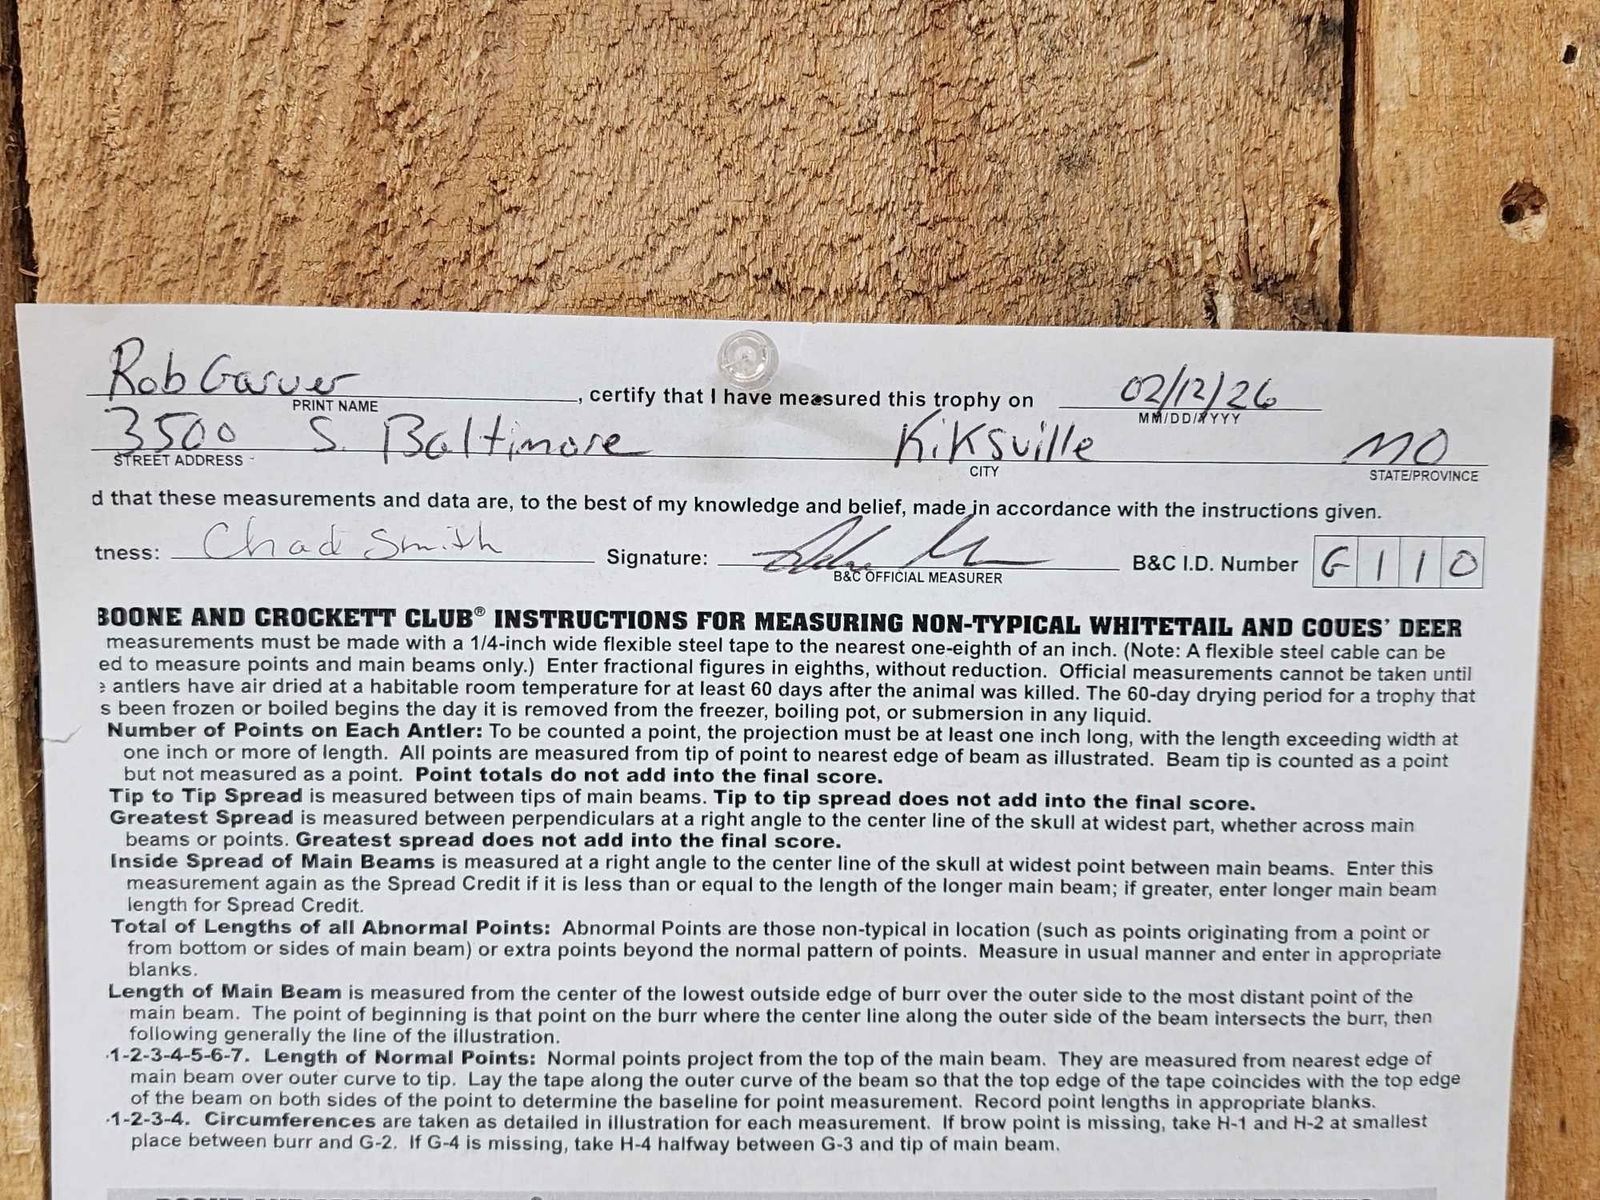 Rob Garver, certify that I have measured this trophy on 02/12/26
PRINT NAME MM/DD/YYYY
3500 S. Baltimore Kiksville MO
STREET ADDRESS CITY STATE/PROVINCE
d that these measurements and data are, to the best of my knowledge and belief, made in accordance with the instructions given.
tness: Chad Smith Signature: B&C I.D. Number G110
B&C OFFICIAL MEASURER
BOONE AND CROCKETT CLUB® INSTRUCTIONS FOR MEASURING NON-TYPICAL WHITETAIL AND COUES' DEER
measurements must be made with a 1/4-inch wide flexible steel tape to the nearest one-eighth of an inch. (Note: A flexible steel cable can be
ed to measure points and main beams only.) Enter fractional figures in eighths, without reduction. Official measurements cannot be taken until
e antlers have air dried at a habitable room temperature for at least 60 days after the animal was killed. The 60-day drying period for a trophy that
s been frozen or boiled begins the day it is removed from the freezer, boiling pot, or submersion in any liquid.
Number of Points on Each Antler: To be counted a point, the projection must be at least one inch long, with the length exceeding width at
one inch or more of length. All points are measured from tip of point to nearest edge of beam as illustrated. Beam tip is counted as a point
but not measured as a point. Point totals do not add into the final score.
Tip to Tip Spread is measured between tips of main beams. Tip to tip spread does not add into the final score.
Greatest Spread is measured between perpendiculars at a right angle to the center line of the skull at widest part, whether across main
beams or points. Greatest spread does not add into the final score.
Inside Spread of Main Beams is measured at a right angle to the center line of the skull at widest point between main beams. Enter this
measurement again as the Spread Credit if it is less than or equal to the length of the longer main beam; if greater, enter longer main beam
length for Spread Credit.
Total of Lengths of all Abnormal Points: Abnormal Points are those non-typical in location (such as points originating from a point or
from bottom or sides of main beam) or extra points beyond the normal pattern of points. Measure in usual manner and enter in appropriate
blanks.
Length of Main Beam is measured from the center of the lowest outside edge of burr over the outer side to the most distant point of the
main beam. The point of beginning is that point on the burr where the center line along the outer side of the beam intersects the burr, then
following generally the line of the illustration.
-1-2-3-4-5-6-7. Length of Normal Points: Normal points project from the top of the main beam. They are measured from nearest edge of
main beam over outer curve to tip. Lay the tape along the outer curve of the beam so that the top edge of the tape coincides with the top edge
of the beam on both sides of the point to determine the baseline for point measurement. Record point lengths in appropriate blanks.
-1-2-3-4. Circumferences are taken as detailed in illustration for each measurement. If brow point is missing, take H-1 and H-2 at smallest
place between burr and G-2. If G-4 is missing, take H-4 halfway between G-3 and tip of main beam.